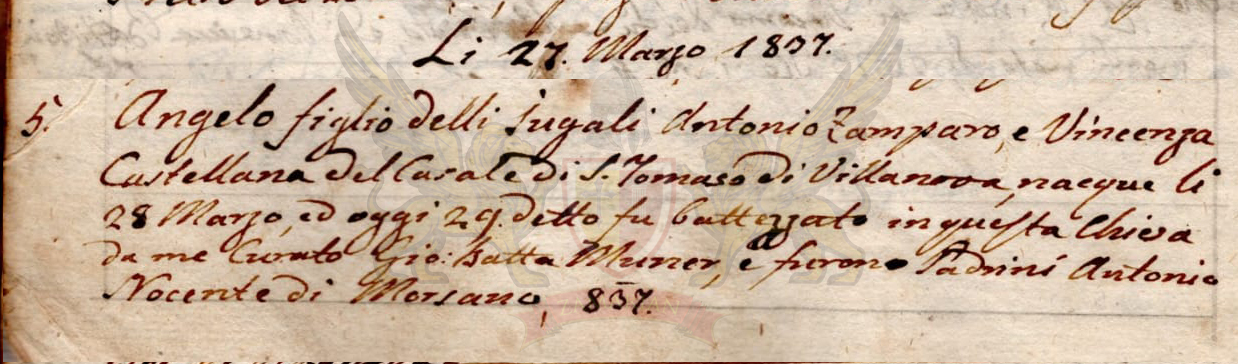 Li 27. Marzo 1837.
5. Angelo figlio delli Jugali Antonio Zamparo, e Vincenza
Castellana del Casale di S. Tomaso di Villanova, nacque li
28 Marzo, ed oggi 29. detto fu battezzato in questa Chiesa
da me Curato Gio: Batta Muner, e furono Padrini Antonio
Nocente di Morsano, 837.